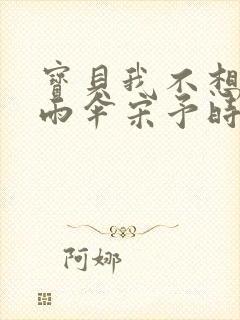 寶貝我不想
雨傘宋予時
阿娜